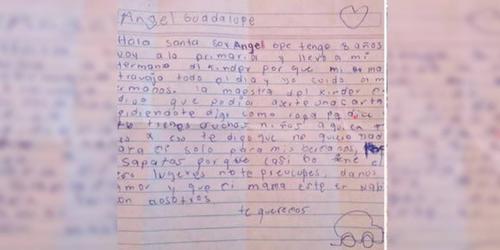 Angel Guadalupe
Hola santa soy Angel ope tengo 8 años
voy ala primaria y llevo a mi
ermano al kinder por que mi ma
travaja todo el dia yo cuido a m
ermanos. la maestra del kinder
digo que podia aserte una carta
pidiendote algo como ropa
tu tienes muchos niños a quien
x eso te digo que no quero nad
ara mi solo para mis
sapatos porque casi no tiene
jugetes no te preocupes, danos
amor y que mi mama este en nab
con nosotros.
te queremos